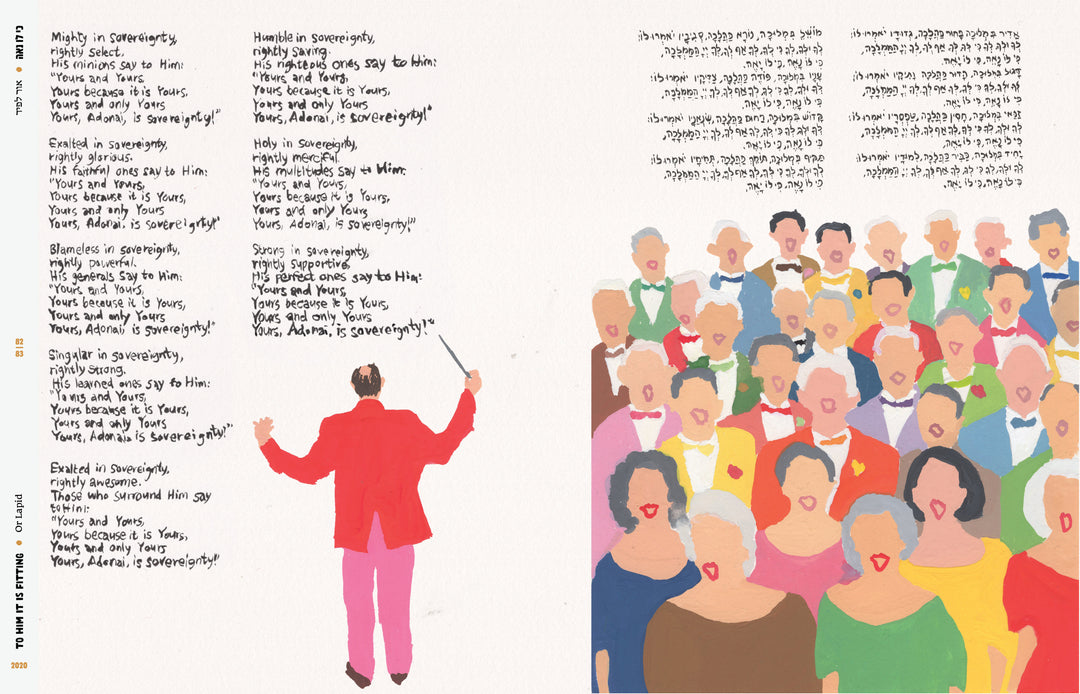 כי לו נאה • אור לפיד
82
83
TO HIM IT IS FITTING • Or Lapid
2020
Mighty in sovereignty,
rightly select.
His minions say to Him:
"Yours and Yours,
Yours because it is Yours,
Yours and only Yours
Yours, Adonai, is sovereignty!"
Exalted in sovereignty,
rightly glorious.
His faithful ones say to Him:
"Yours and Yours,
Yours because it is Yours,
Yours and only Yours
Yours, Adonai, is sovereignty!"
Blameless in sovereignty,
rightly powerful.
His generals say to Him:
"Yours and Yours,
Yours because it is Yours,
Yours and only Yours
Yours, Adonai, is sovereignty!"
Singular in sovereignty,
rightly strong.
His learned ones say to Him:
"Yours and Yours,
Yours because it is Yours,
Yours and only Yours
Yours, Adonai, is sovereignty!"
Exalted in sovereignty,
rightly awesome.
Those who surround Him say
to Him:
"Yours and Yours,
Yours because it is Yours,
Yours and only Yours
Yours, Adonai, is sovereignty!"
Humble in sovereignty,
rightly saving.
His righteous ones say to Him:
"Yours and Yours,
Yours because it is Yours,
Yours and only Yours
Yours, Adonai, is sovereignty!"
Holy in sovereignty,
rightly merciful.
His multitudes say to Him:
"Yours and Yours,
Yours because it is Yours,
Yours and only Yours
Yours, Adonai, is sovereignty!"
Strong in sovereignty,
rightly supportive.
His perfect ones say to Him:
"Yours and Yours,
Yours because it is Yours,
Yours and only Yours
Yours, Adonai, is sovereignty!"
אַדִּיר בִּמְלוּכָה, בָּחוּר כַּהֲלָכָה, גְּדוּדָיו יֹאמְרוּ לוֹ:
לְךָ וּלְךָ, לְךָ כִּי לְךָ, לְךָ אַף לְךָ, לְךָ יְיָ הַמַּמְלָכָה,
כִּי לוֹ נָאֶה, כִּי לוֹ יָאֶה.
דָּגוּל בִּמְלוּכָה, הָדוּר כַּהֲלָכָה, וָתִיקָיו יֹאמְרוּ לוֹ:
לְךָ וּלְךָ, לְךָ כִּי לְךָ, לְךָ אַף לְךָ, לְךָ יְיָ הַמַּמְלָכָה,
כִּי לוֹ נָאֶה, כִּי לוֹ יָאֶה.
זַכַּאי בִּמְלוּכָה, חָסִין כַּהֲלָכָה, טַפְסְרָיו יֹאמְרוּ לוֹ:
לְךָ וּלְךָ, לְךָ כִּי לְךָ, לְךָ אַף לְךָ, לְךָ יְיָ הַמַּמְלָכָה,
כִּי לוֹ נָאֶה, כִּי לוֹ יָאֶה.
יָחִיד בִּמְלוּכָה, כַּבִּיר כַּהֲלָכָה, לִמּוּדָיו יֹאמְרוּ לוֹ:
לְךָ וּלְךָ, לְךָ כִּי לְךָ, לְךָ אַף לְךָ, לְךָ יְיָ הַמַּמְלָכָה,
כִּי לוֹ נָאֶה, כִּי לוֹ יָאֶה.
מוֹשֵׁל בִּמְלוּכָה, נוֹרָא כַּהֲלָכָה, סְבִיבָיו יֹאמְרוּ לוֹ:
לְךָ וּלְךָ, לְךָ כִּי לְךָ, לְךָ אַף לְךָ, לְךָ יְיָ הַמַּמְלָכָה,
כִּי לוֹ נָאֶה, כִּי לוֹ יָאֶה.
עָנָיו בִּמְלוּכָה, פּוֹדֶה כַּהֲלָכָה, צַדִּיקָיו יֹאמְרוּ לוֹ:
לְךָ וּלְךָ, לְךָ כִּי לְךָ, לְךָ אַף לְךָ, לְךָ יְיָ הַמַּמְלָכָה,
כִּי לוֹ נָאֶה, כִּי לוֹ יָאֶה.
קָדוֹשׁ בִּמְלוּכָה, רַחוּם כַּהֲלָכָה, שִׁנְאַנָּיו יֹאמְרוּ לוֹ:
לְךָ וּלְךָ, לְךָ כִּי לְךָ, לְךָ אַף לְךָ, לְךָ יְיָ הַמַּמְלָכָה,
כִּי לוֹ נָאֶה, כִּי לוֹ יָאֶה.
תַּקִּיף בִּמְלוּכָה, תּוֹמֵךְ כַּהֲלָכָה, תְּמִימָיו יֹאמְרוּ לוֹ:
לְךָ וּלְךָ, לְךָ כִּי לְךָ, לְךָ אַף לְךָ, לְךָ יְיָ הַמַּמְלָכָה,
כִּי לוֹ נָאֶה, כִּי לוֹ יָאֶה.